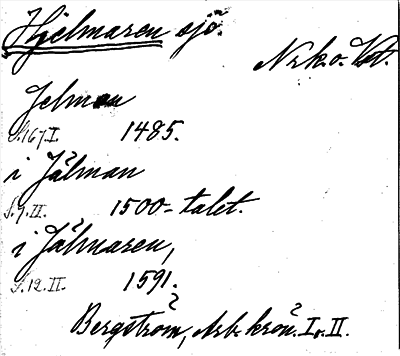 Hjelmaren sjö.
Nrk. o. Vst.
Jelman
S. 167 I. 1485.
i Jälman
S. 9. II. 1500-talet.
i Jälmaren,
S. 12. II. 1591.
Bergström, Arb. krön. I o. II.